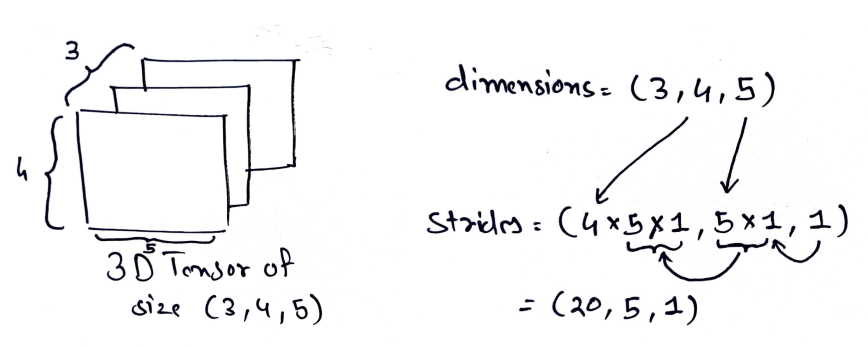 3
4
5
3D Tensor of
size (3,4,5)
dimensions = (3,4,5)
Strides = (4×5×1, 5×1, 1)
= (20, 5, 1)